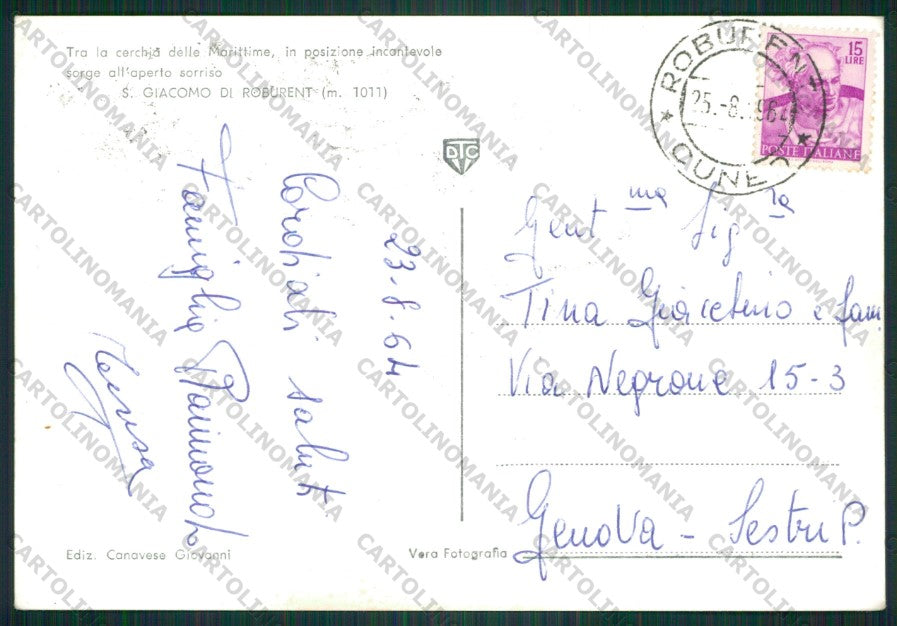 Tra la cerchia delle Marittime, in posizione incantevole
sorge all'aperto sorriso
S. GIACOMO DI ROBURENT (m. 1011)
DTC
23-8-64
Cordiali saluti
Famiglia Raimondo
Teresa
Ediz. Canavese Giovanni
Vera Fotografia
ROBURENT
25.-8.1964
CUNEO
15
LIRE
POSTE ITALIANE
Gent ma Sig ra
Tina Giacchino e fam
Via Negrone 15-3
Genova - Sestri P.
CARTOLINOMANIA